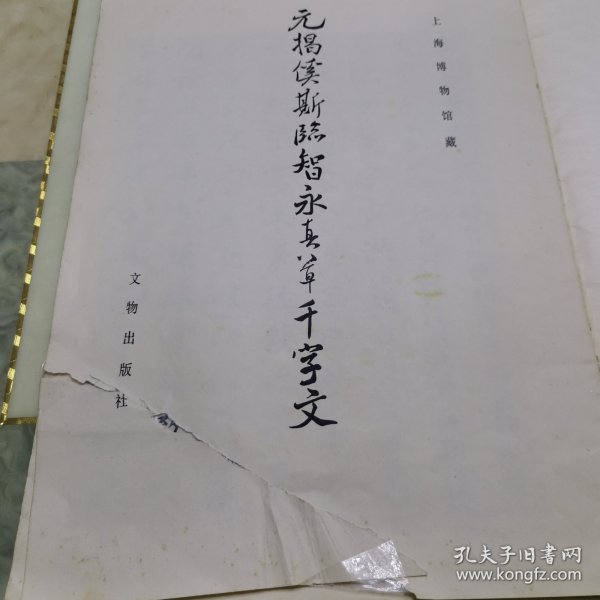 上海博物馆藏
元揭傒斯临智永真草千字文
文物出版社
孔夫子旧书网
www.kongfz.com